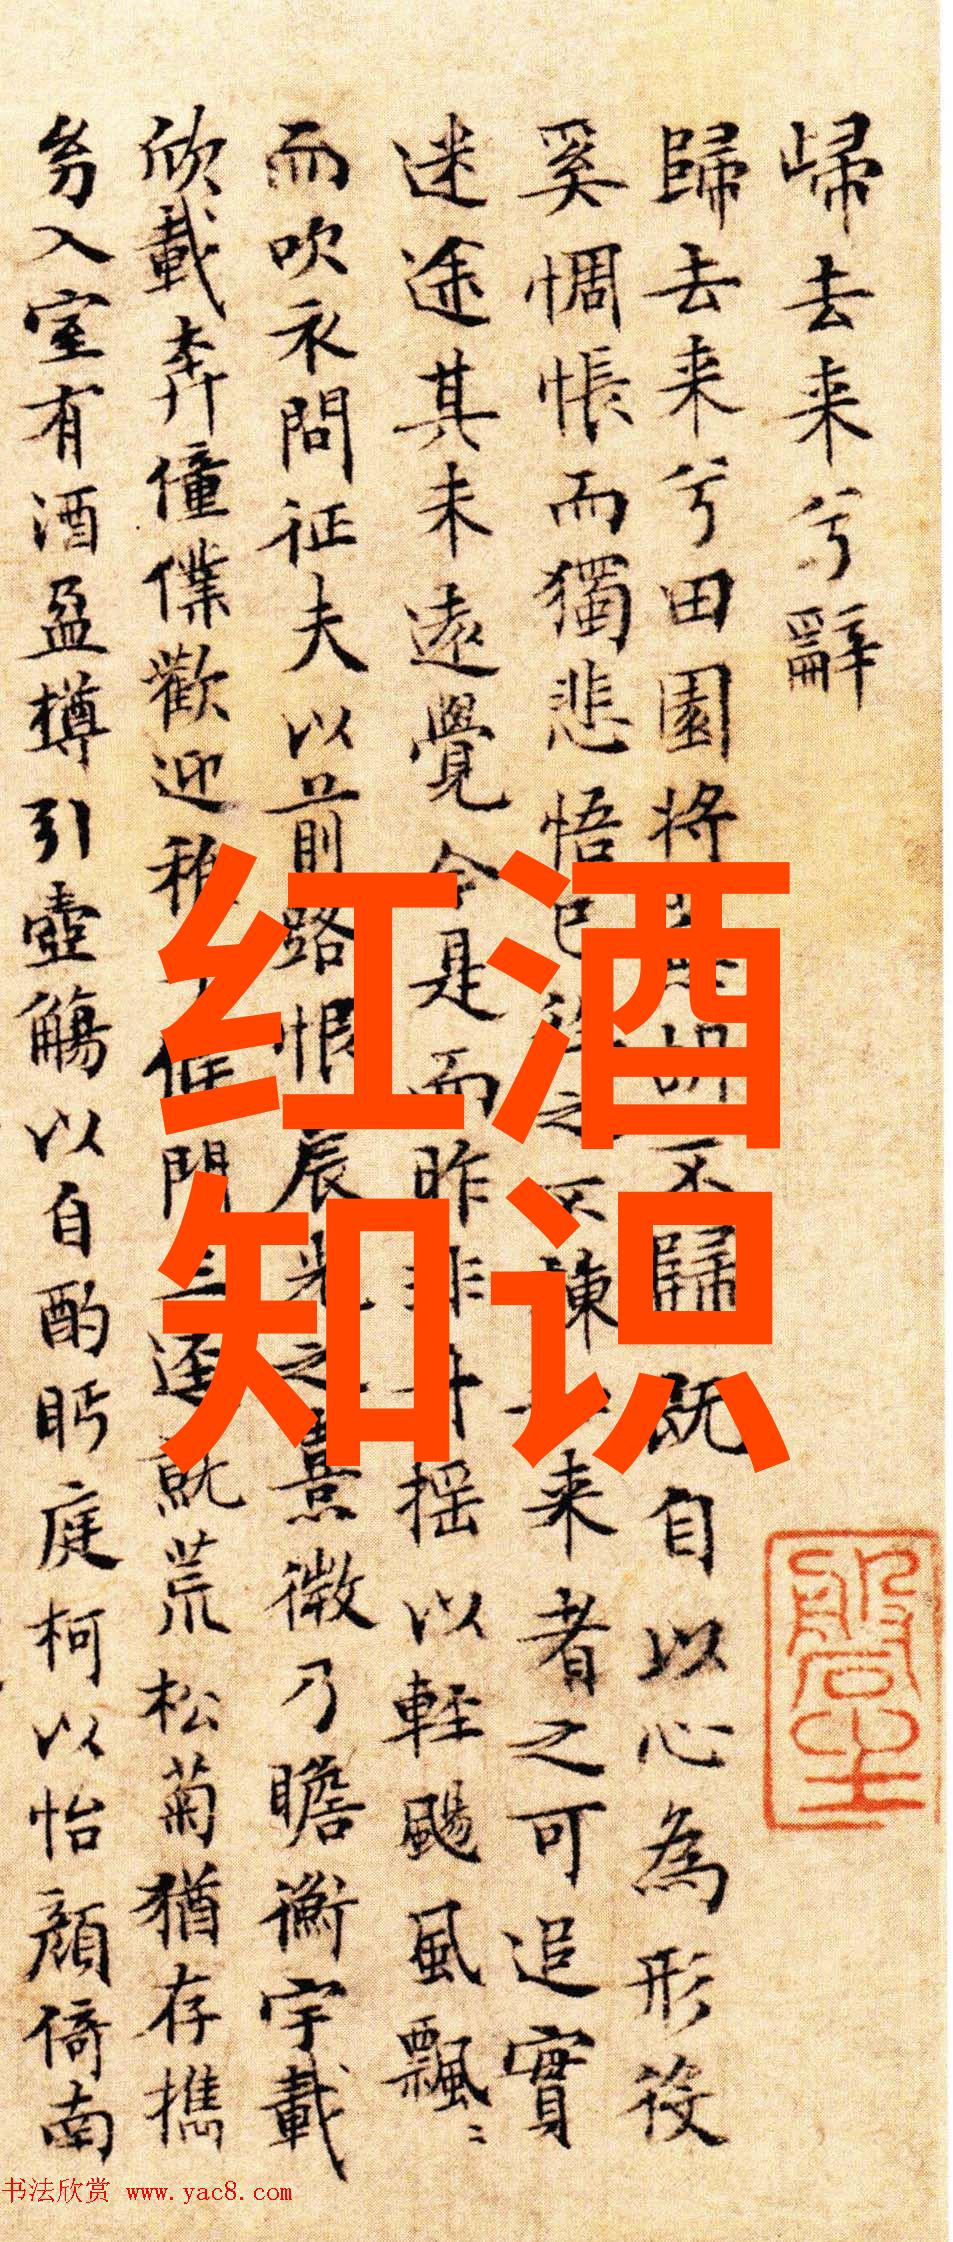 歸去来兮辭
歸去来兮田園將不歸既自以心為形役
奚惆悵而獨悲悟已之不諫来者之可追實
迷途其未遠覺今是而昨非舟揺以輕颺風飄〻
而吹衣問征夫以前路恨晨光之熹微乃瞻衡宇載
欣載奔僮僕歡迎稚候門三逕就荒松菊猶存攜
幼入室有酒盈樽引壺觴以自酌眄庭柯以怡顔倚南
红酒
知识
书法欣赏 www.yac8.com